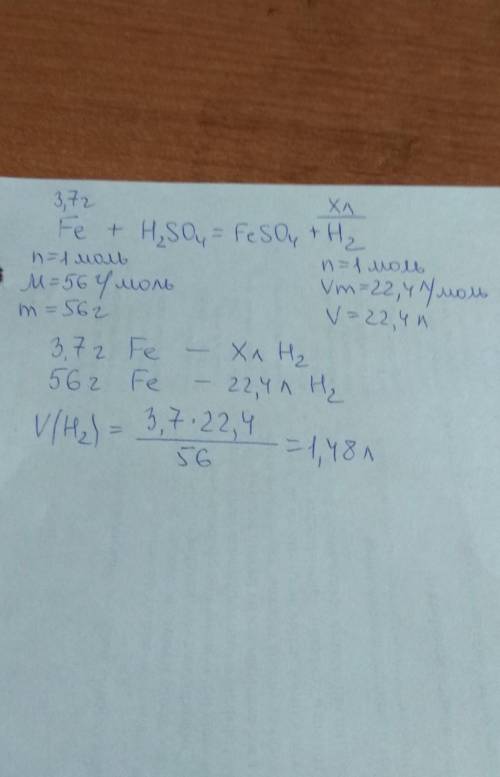 3,7г хл
Fe + H₂SO₄ = FeSO₄ + H₂
n=1моль n=1моль
M=56г/моль Vm=22,4л/моль
m=56г V=22,4л
3,7г Fe — Хл H₂
56г Fe – 22,4л H₂
V(H₂) = 3,7·22,4 / 56 = 1,48л